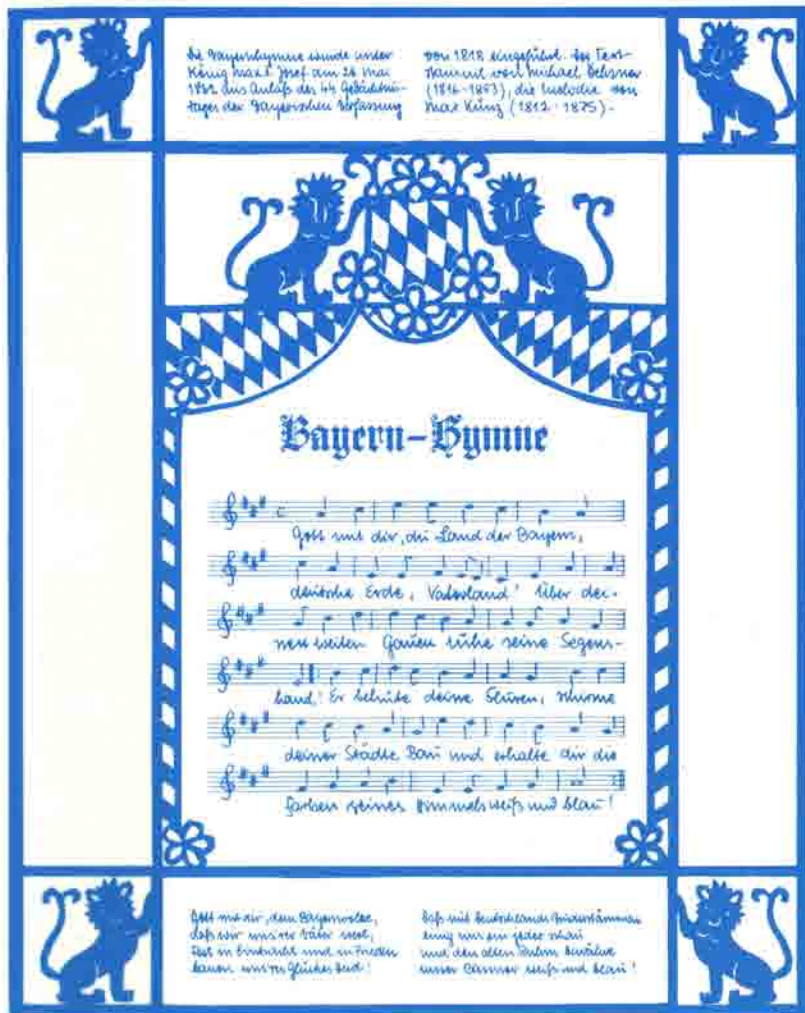 Die Bayernhymne wurde unter
König Max I. Josef am 26 Mai
1862 aus Anlaß des 44 Gedächtnis-
tages der Bayerischen Verfassung
von 1818 eingeführt. Der Text
stammt von Michael Öchsner
(1816-1893), die Melodie von
Max Kunz (1812-1875).
Bayern-Hymne
Gott mit dir, du Land der Bayern,
deutsche Erde, Vaterland! Über dei-
nen weiten Gauen ruhe seine Segens-
hand! Er behüte deine Fluren, schirme
deiner Städte Bau und erhalte dir die
Farben seines Himmels weiß und blau!
Gott mit dir, dem Bayernvolke,
daß wir unsrer Väter wert,
fest in Eintracht und in Frieden
bauen unsres Glückes Herd!
Daß mit Deutschlands Bruderstämmen
einig uns ein jeder schau
und den alten Ruhm bewähre
unser Banner weiß und blau!